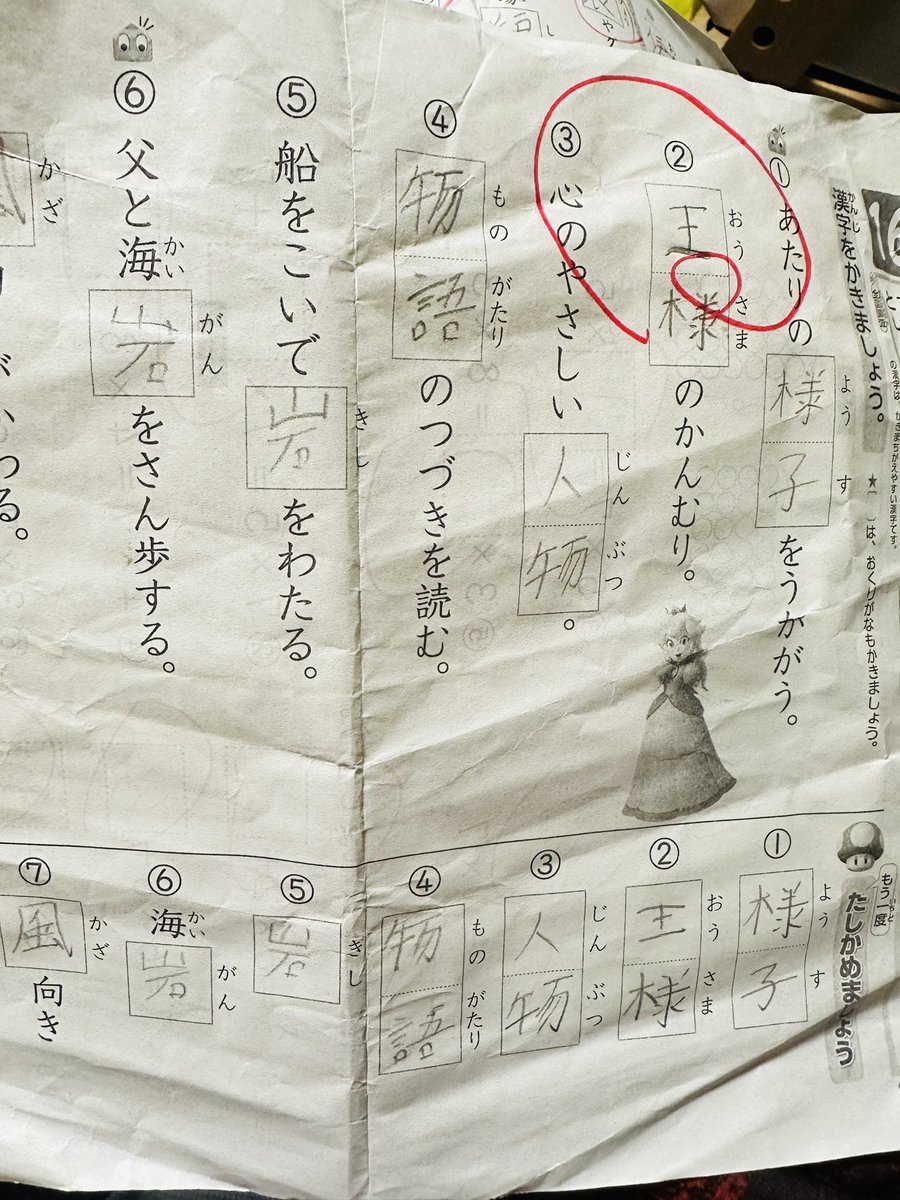 16
の漢字は、かきまちがえやすい漢字です。
かんじ
漢字をかきましょう。
は、おくりがなもかきましょう。
よう す
①あたりの様子をうかがう。
おう さま
②王様のかんむり。
じん ぶつ
③心のやさしい人物。
もの がたり
④物語のつづきを読む。
きし
⑤船をこいで岩をわたる。
かい がん
⑥父と海岩をさん歩する。
かざ
もう一度
いちど
たしかめましょう
よう す
①様子
おう さま
②王様
じん ぶつ
③人物
もの がたり
④物語
きし
⑤岩
かい がん
⑥海岩
かざ
⑦風向き